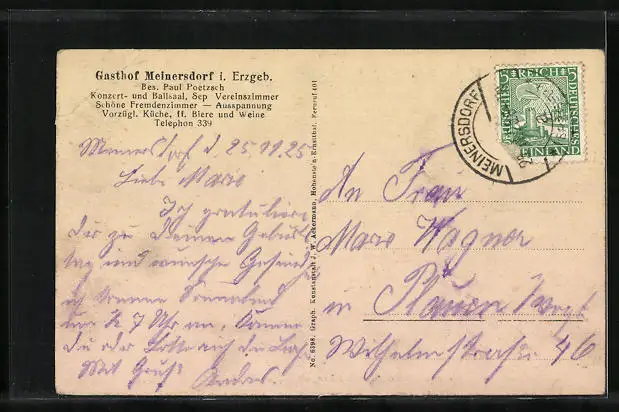 Gasthof Meinersdorf i. Erzgeb.
Bes. Paul Poetzsch
Konzert- und Ballsaal, Sep Vereinszimmer
Schöne Fremdenzimmer — Ausspannung
Vorzügl. Küche, ff. Biere und Weine
Telephon 339
Meinersdorf d. 25.11.25
Liebe Marie
Ich gratuliere
dir zu deinem Geburts
tag und wünsche Gesund
Sonnabend
um 7 Uhr an,
du
Mit Gruß
No. 6398. Graph. Kunstanstalt J. W. Ackermann, Hohenstein-Ernstthal. Fernruf 401
MEINERSDORF
5 REICH 5
DEUTSCHES
DEUTSCHES
RHEINLAND
An Frau
Wagner
in Plauen Vogt
Wilhelmstraße 46